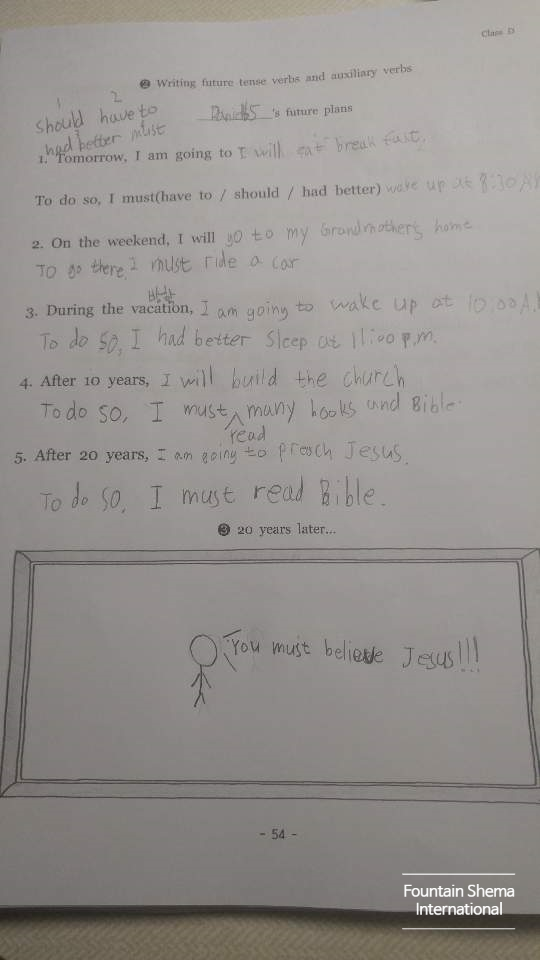 Class D
❷ Writing future tense verbs and auxiliary verbs
1 2
should have to
's future plans
3 4
had better must
1. Tomorrow, I am going to I will eat break fast.
To do so, I must(have to / should / had better) wake up at 8:30 A
2. On the weekend, I will go to my Grandmother's home
To go there, I must ride a car
방학
3. During the vacation, I am going to wake up at 10:00 A.
To do so, I had better sleep at 11:00 p.m.
4. After 10 years, I will build the church
To do so, I must ^ many books and Bible.
read
5. After 20 years, I am going to preach Jesus.
To do so, I must read Bible.
❸ 20 years later...
You must believe Jesus!!!
- 54 -
Fountain Shema
International